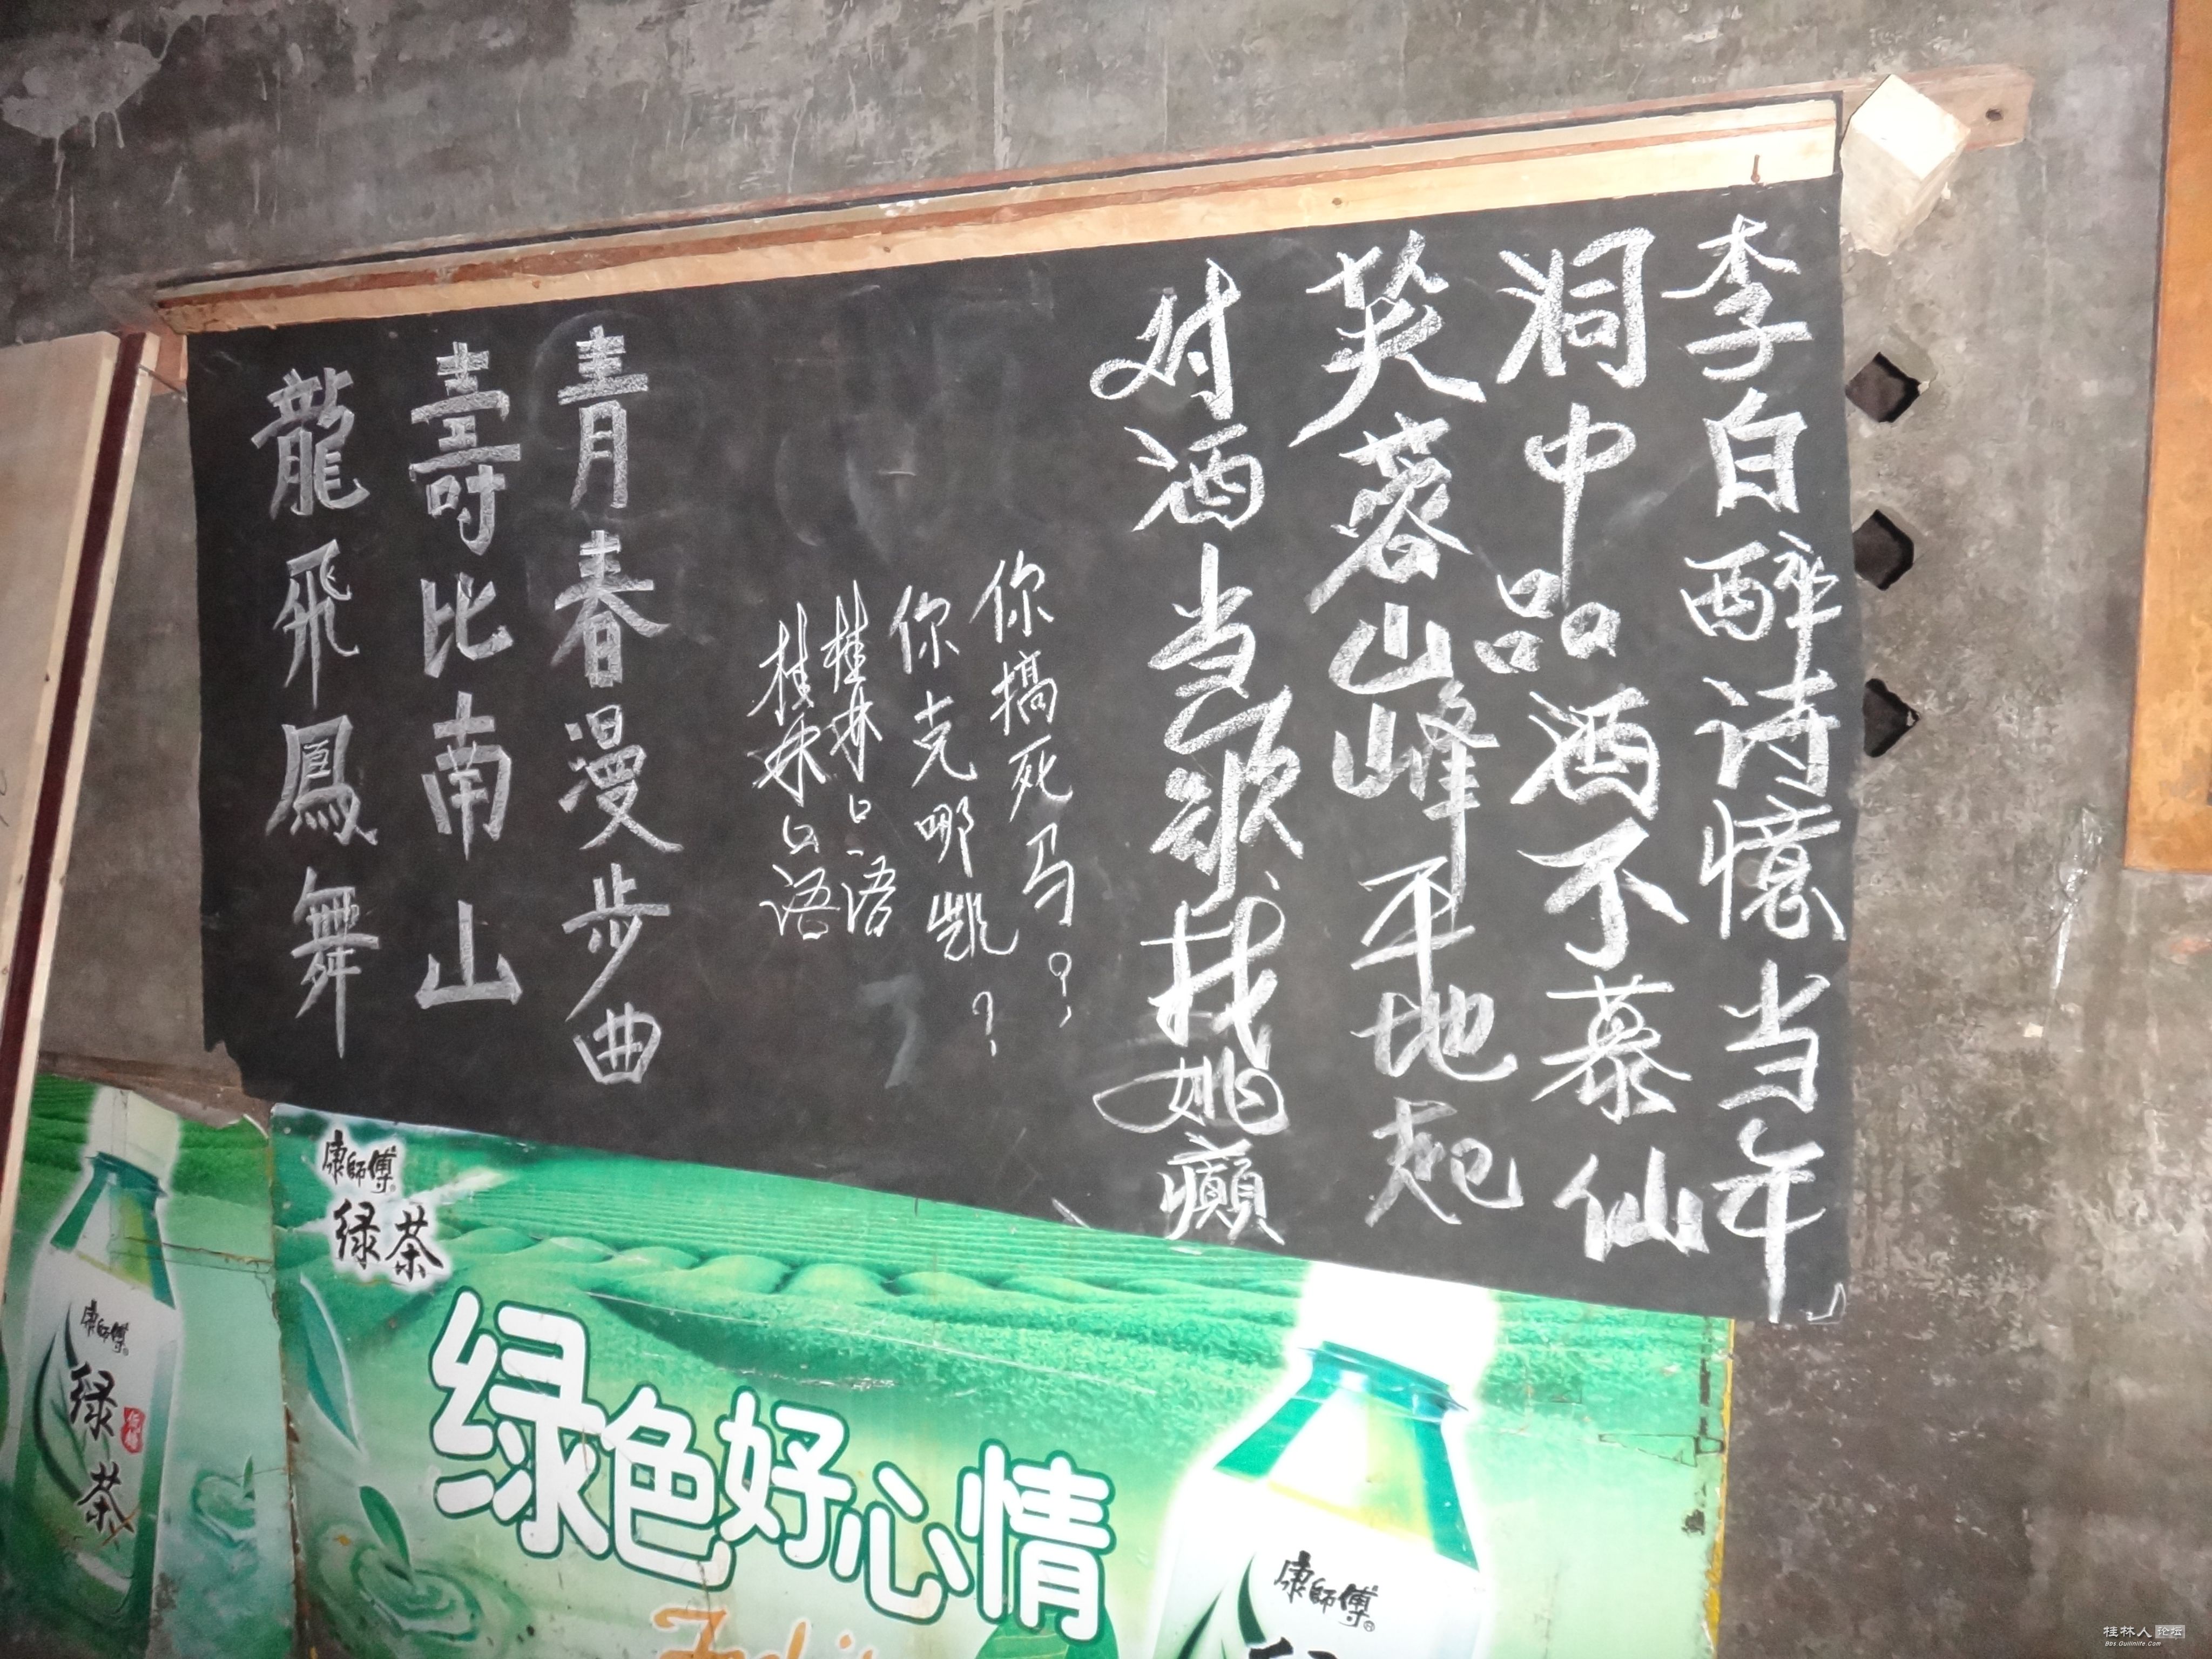 李白醉诗憶当年
洞中品酒不慕仙
芙蓉山峰平地起
对酒当歌找姚癫
你搞死马?
你克哪凯?
桂林口语
桂林口语
青春漫步曲
壽比南山
龍飛鳳舞
康師傅
绿茶
绿色好心情
康師傅
绿茶
低糖
康師傅
桂林人论坛
Bbs.Guilinlife.Com